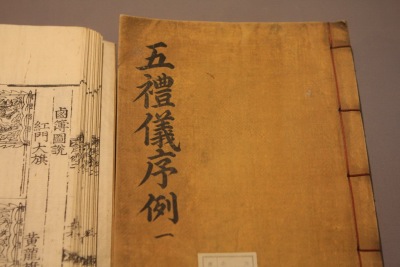 五禮儀序例
一
鹵簿圖說
紅門大旗
黃龍